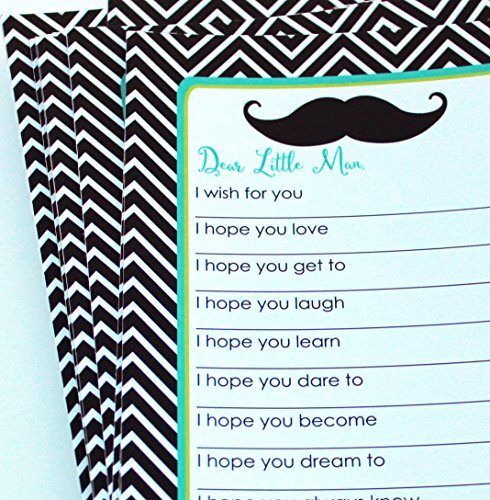 Dear Little Man,
I wish for you
I hope you love
I hope you get to
I hope you laugh
I hope you learn
I hope you dare to
I hope you become
I hope you dream to
I hope you always know